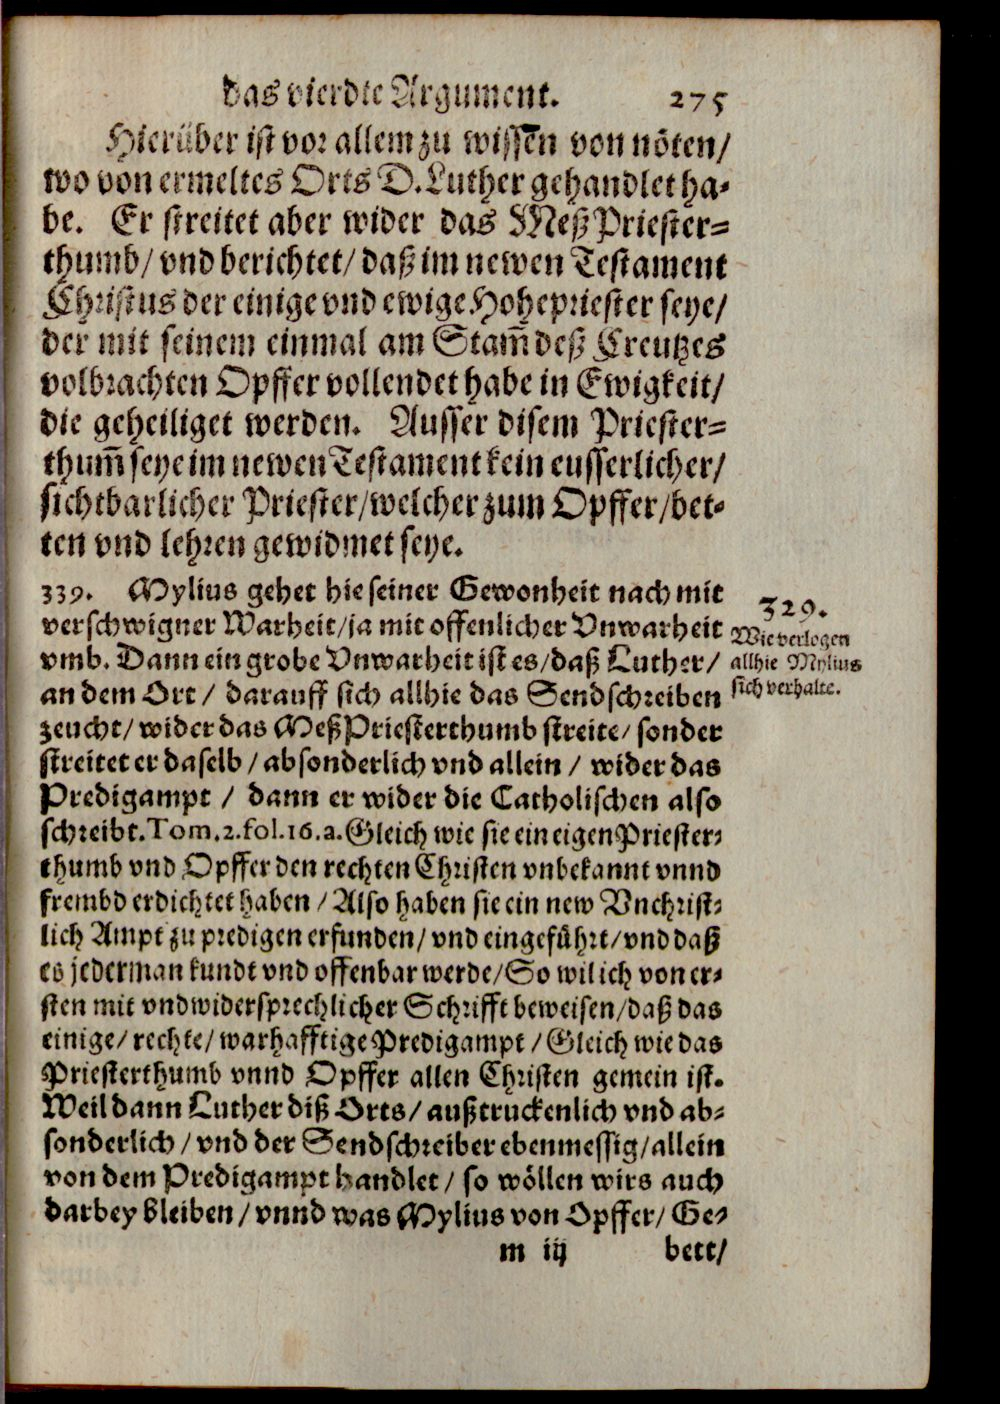 das vierdte Argument. 275
Hierüber ist vor allem zu wissen von nöten/
wo von ermeltes Orts D. Luther gehandlet ha-
be. Er streitet aber wider das Meß Priester-
thumb/ vnd berichtet/ daß im newen Testament
Christus der einige vnd ewige Hohepriester seye/
der mit seinem einmal am Stam̃ deß Creutzes
volbrachten Opffer vollendet habe in Ewigkeit/
die geheiliget werden. Ausser disem Priester-
thum̃ seye im newen Testament kein eusserlicher/
sichtbarlicher Priester/ welcher zum Opffer/ bet-
ten vnd lehren gewidmet seye.
339. Mylius gehet hie seiner Gewonheit nach mit
verschwigner Warheit/ ja mit offenlicher Vnwarheit
vmb. Dann ein grobe Vnwarheit ist es/ daß Luther/
an dem Ort/ darauff sich allhie das Sendschreiben
zeucht/ wider das Meß Priesterthumb streite/ sonder
streitet er daselb/ absonderlich vnd allein/ wider das
Predigampt/ dann er wider die Catholischen also
schreibt. Tom. 2. fol. 16. a. Gleich wie sie ein eigen Priester-
thumb vnd Opffer den rechten Christen vnbekannt vnnd
frembd erdichtet haben/ Also haben sie ein new Vnchrist-
lich Ampt zu predigen erfunden/ vnd eingeführt/ vnd daß
es jederman kundt vnd offenbar werde/ So wil ich von er-
sten mit vndwidersprechlicher Schrifft beweisen/ daß das
einige/ rechte/ warhafftige Predigampt/ Gleich wie das
Priesterthumb vnnd Opffer allen Christen gemein ist.
Weil dann Luther diß Orts/ außtruckenlich vnd ab-
sonderlich/ vnd der Sendschreiber ebenmessig/ allein
von dem Predigampt handlet/ so wöllen wirs auch
darbey bleiben/ vnnd was Mylius von Opffer/ Ge-
m iij bett/
329.
Wie verlogen
allhie Mylius
sich verhalte.